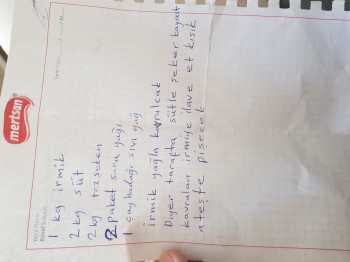 mertsan
1 kg irmik
2 kg süt
2 kg tozşeker
2 Paket sana yağı
1 çaybadağı sıvı yağ
irmik yağla kavrulcak
Diyer tarafta sütle şeker kaynat
kavrulan irmiğe ilave et kısık
ateşte pişecek